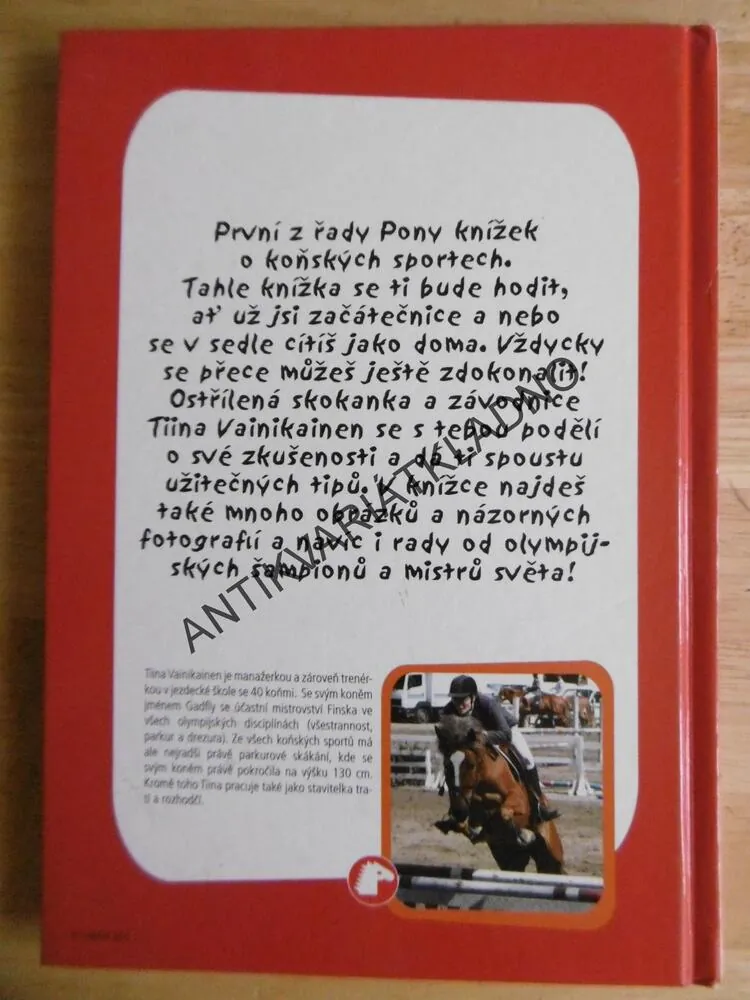 První z řady Pony knížek
o koňských sportech.
Tahle knížka se ti bude hodit,
ať už jsi začátečnice a nebo
se v sedle cítíš jako doma. Vždycky
se přece můžeš ještě zdokonalit!
Ostřílená skokanka a závodnice
Tiina Vainikainen se s tebou podělí
o své zkušenosti a dá ti spoustu
užitečných tipů. V knížce najdeš
také mnoho obrázků a názorných
fotografií a navíc i rady od olympij-
ských šampionů a mistrů světa!
ANTIKVARIÁTKLADNO
Tiina Vainikainen je manažerkou a zároveň trenér-
kou v jezdecké škole se 40 koňmi. Se svým koněm
jménem Gadfly se účastní mistrovství Finska ve
všech olympijských disciplínách (všestrannost,
parkur a drezura). Ze všech koňských sportů má
ale nejradši právě parkurové skákání, kde se
svým koněm právě pokročila na výšku 130 cm.
Kromě toho Tiina pracuje také jako stavitelka tra-
tí a rozhodčí.